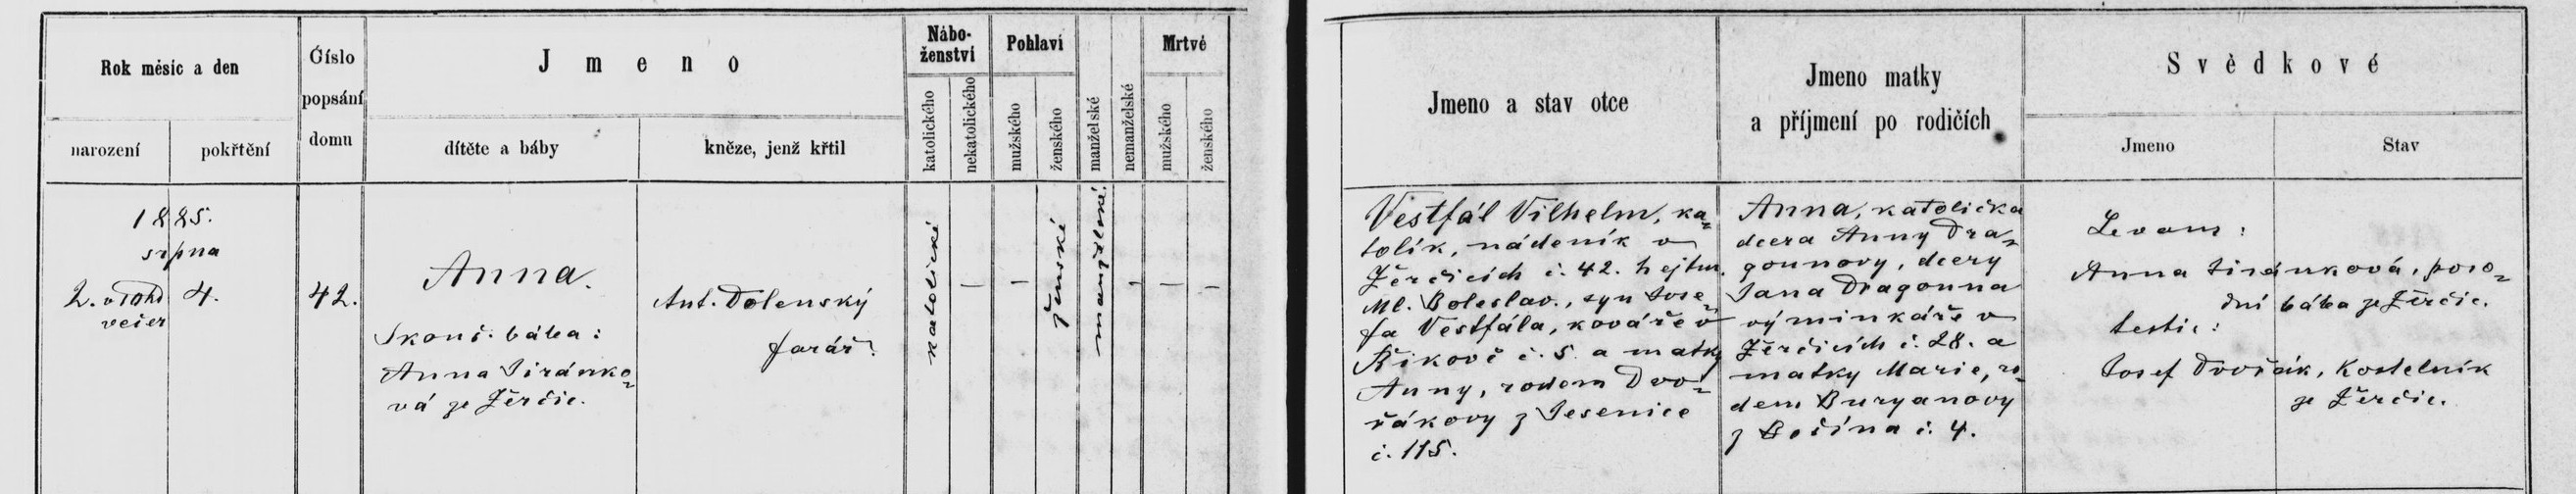 Rok měsíc a den
narození
pokřtění
Číslo
popsání
domu
Jmeno
dítěte a báby
kněze, jenž křtil
Nábo-
ženství
katolického
nekatolického
Pohlaví
mužského
ženského
manželské
nemanželské
Mrtvé
mužského
ženského
1885.
srpna
2. v 10 hd
večer
4.
42.
Anna.
Skouš. bába:
Anna Jiránko-
vá ze Žerčic.
Ant. Dolenský
farář.
katolické
—
—
ženské
manželské.
—
—
—
Jmeno a stav otce
Jmeno matky
a příjmení po rodičích
Svědkové
Jmeno
Stav
Vestfál Vilhelm, ka-
tolík, nádeník v
Žerčicích č. 42. hejtm.
Ml. Boleslav., syn Jose-
fa Vestfála, kováře v
Řikově č. 5. a matky
Anny, rodem Dvo-
řákovy z Jesenice
č. 115.
Anna, katolička
dcera Anny Dra-
gounovy, dcery
Jana Dragouna
výminkáře v
Žerčicích č. 28. a
matky Marie, ro-
dem Buryanovy
z Bočína č. 4.
Levans:
Anna Jiránková, poro-
dní bába ze Žerčic.
testis:
Josef Dvořák, kostelník
ze Žerčic.